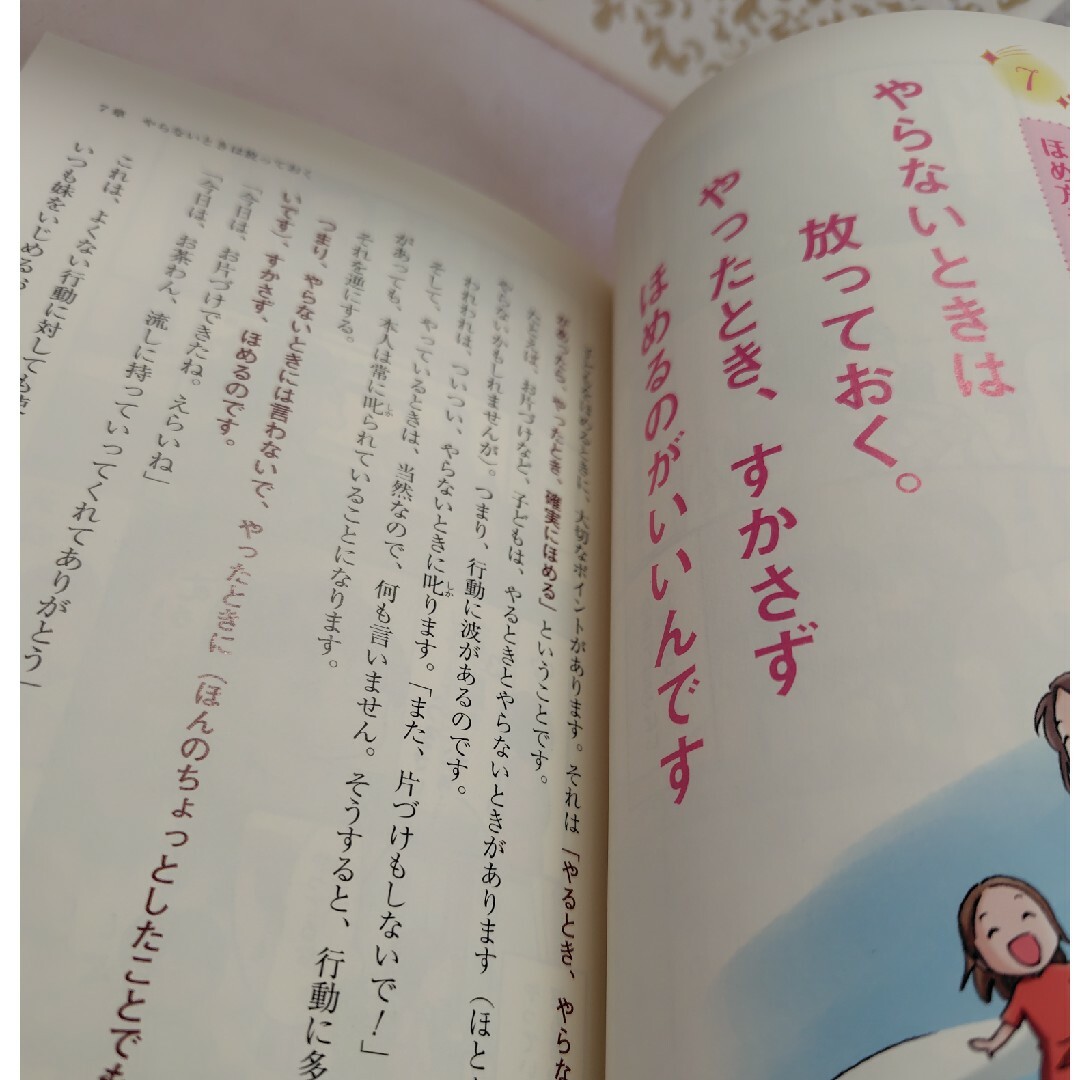 7
ほめ方
やらないときは
放っておく。
やったとき、すかさず
ほめるのがいいんです
子どもをほめるときに、大切なポイントがあります。それは「やるとき、やらな
があったなら、やったとき、確実にほめる」ということです。
たとえば、お片づけなど、子どもは、やるときとやらないときがあります(ほと
やらないかもしれませんが)。つまり、行動に波があるのです。
われわれは、ついつい、やらないときに叱ります。「また、片づけもしないで!」
そして、やっているときは、当然なので、何も言いません。そうすると、行動に多
があっても、本人は常に叱られていることになります。
それを逆にする。
つまり、やらないときには言わないで、やったときに(ほんのちょっとしたことでも
いいです)、すかさず、ほめるのです。
「今日は、お片づけできたね。えらいね」
「今日は、お茶わん、流しに持っていってくれてありがとう」
これは、よくない行動に対しても
いつも妹をいじめる
7章 やらないときは放っておく